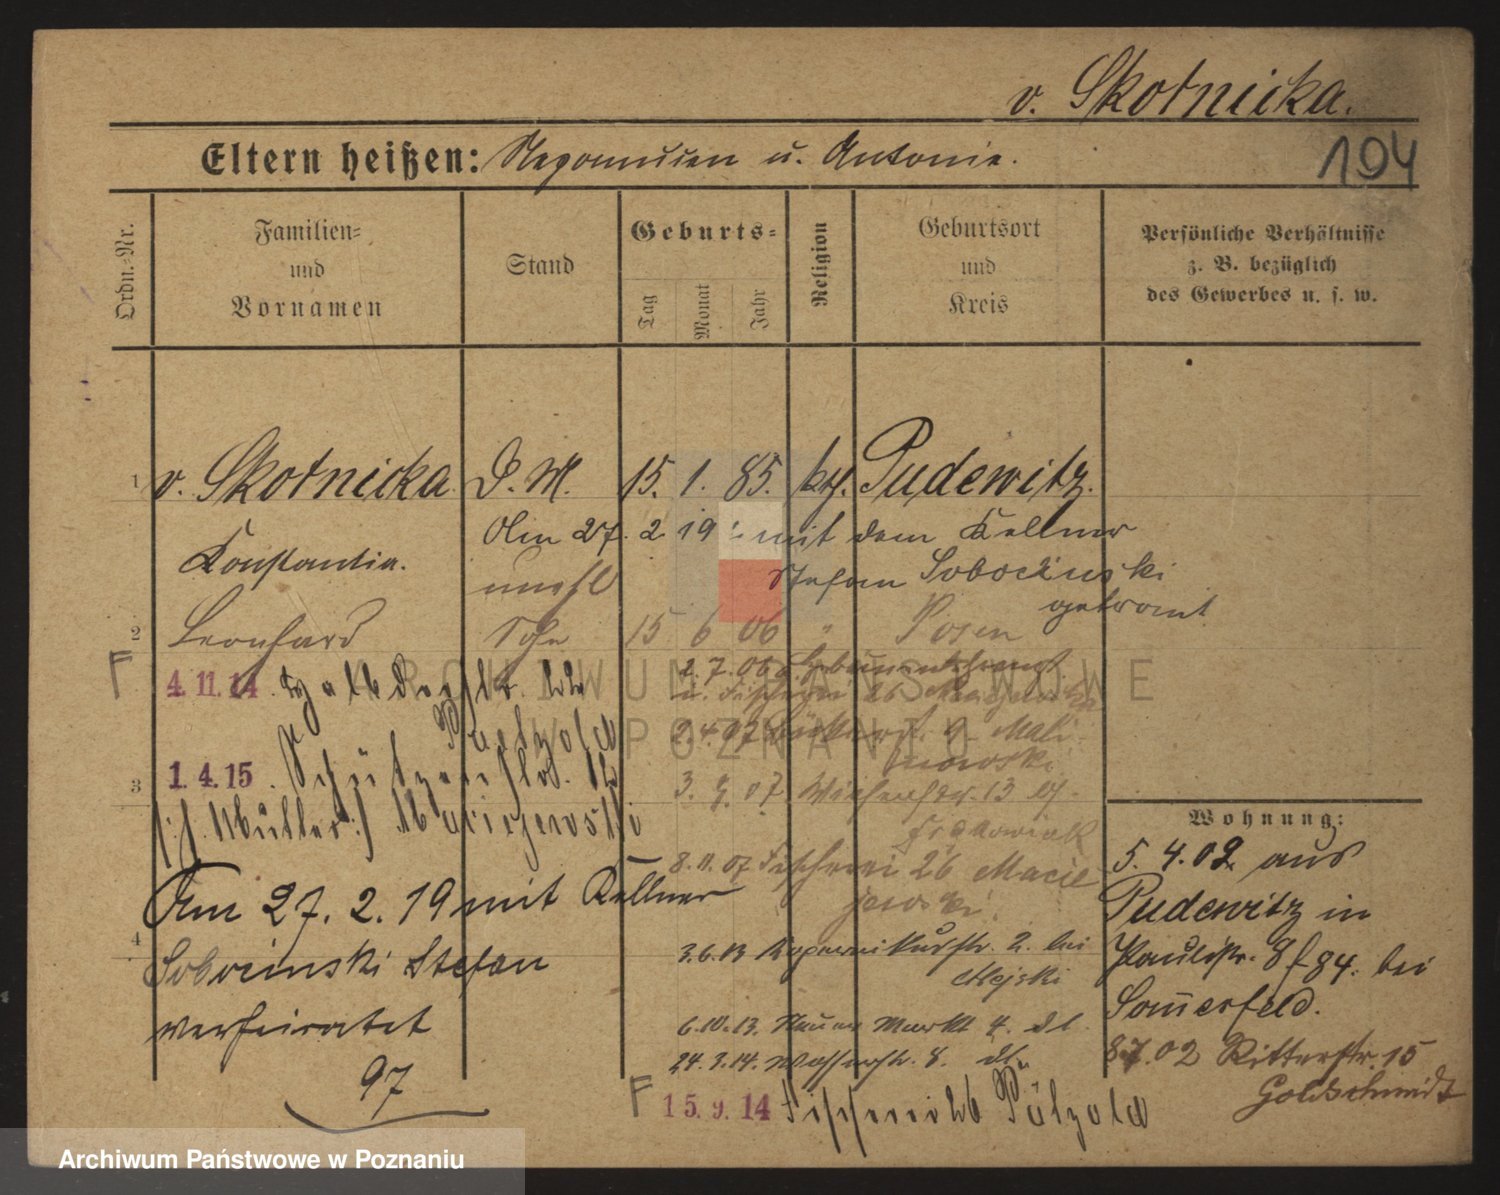 v. Skotnicka.
194
Eltern heißen: Nepomucen u. Antonie.
Ordn.-Nr.
Familien-
und
Vornamen
Stand
Geburts-
Tag
Monat
Jahr
Religion
Geburtsort
und
Kreis
Persönliche Verhältnisse
z. B. bezüglich
des Gewerbes u. s. w.
1 v. Skotnicka. D. M. 15. 1. 85. kth. Pudewitz.
Konstantia.
Am 27. 2. 19 mit dem Kellner
Stefan Sobocinski
getraut
unehl
2 Leonhard Sohn 15 6 06 " Posen
F 4.11.14
2.7.06
Fischerei 26
Petzold
2.4.07 9 Mali-
nowski
1.4.15 Schützenstr.
3
3. 7. 07 Wiesenstr. 13
Frąckowiak
Maciejewski
8.11.07 Fischerei 26 Macie
jewski.
Am 27. 2. 19 mit Kellner
Sobocinski Stefan
verheiratet
97
4
3.6.13 Kopernikusstr. 2. bei
6.10.13. Neuer Markt 4.
24.3.14. Wasserstr. 8.
F 15.9.14 Fischerei 26 Pätzold
Wohnung:
5. 4. 02. aus
Pudewitz in
Paulistr. 8 bei
Somerfeld.
8.7.02 Ritterstr. 15
Goldschmidt
ARCHIWUM PAŃSTWOWE
W POZNANIU
Archiwum Państwowe w Poznaniu